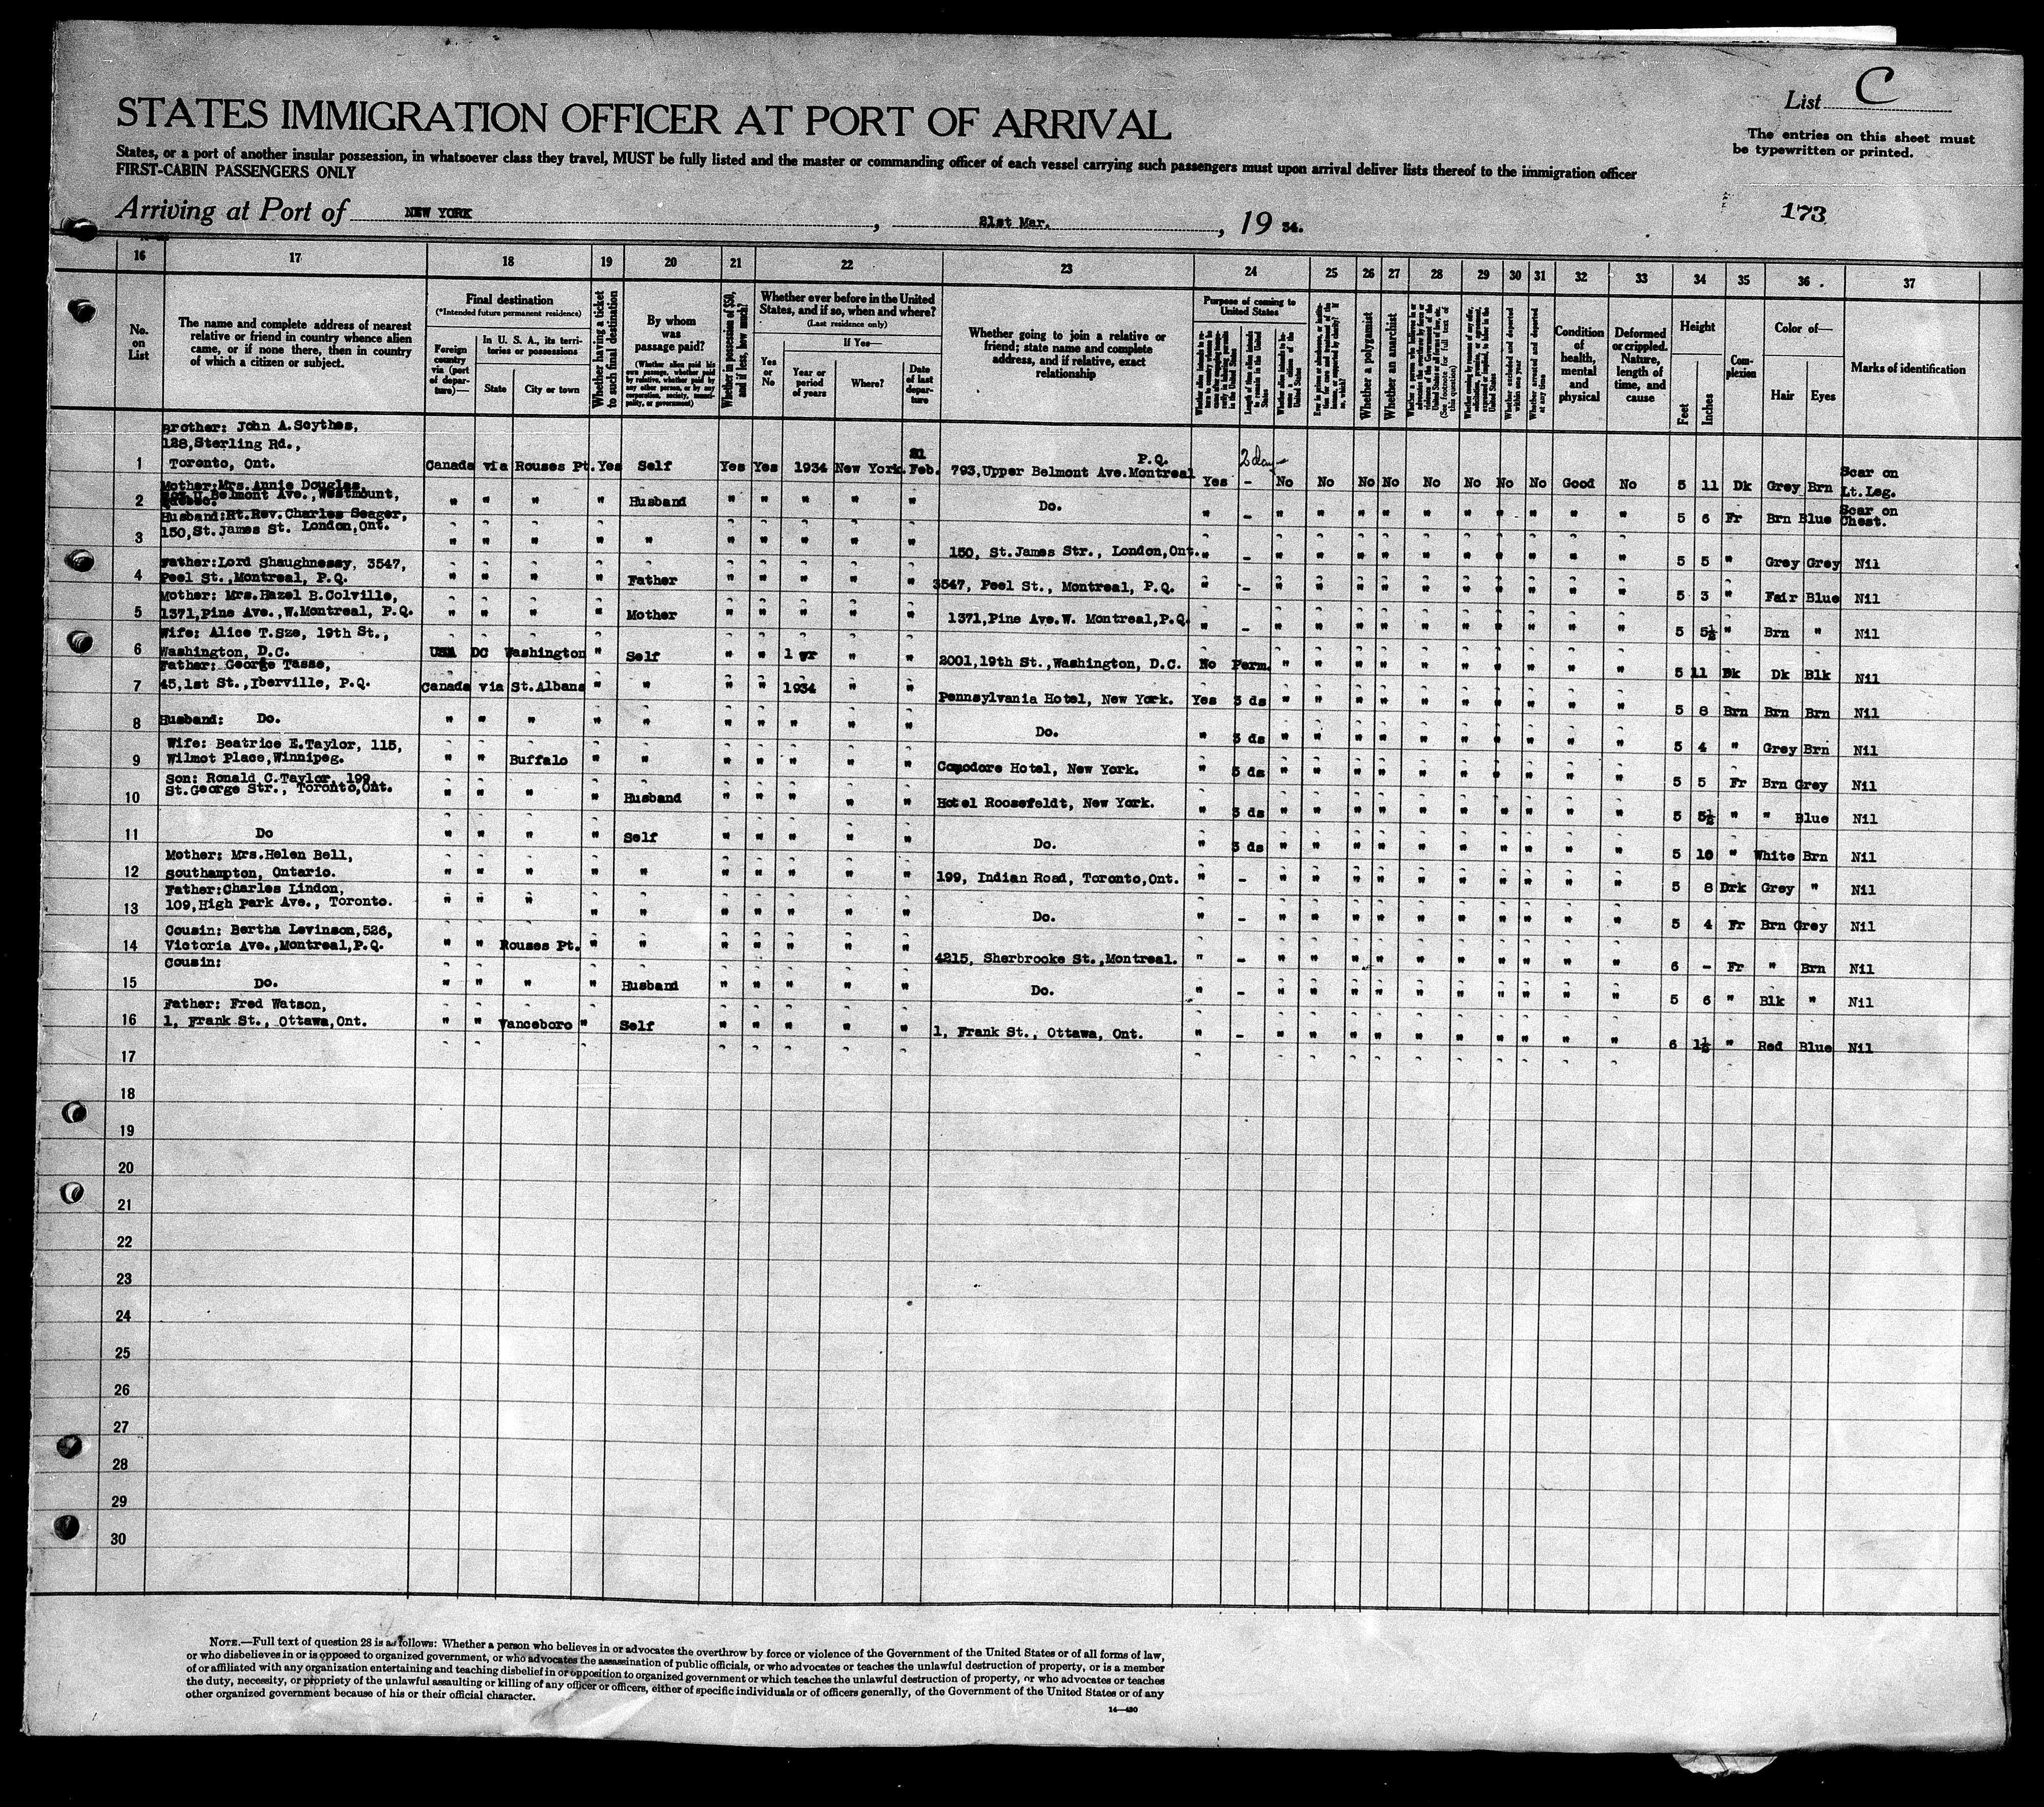 List C
STATES IMMIGRATION OFFICER AT PORT OF ARRIVAL
The entries on this sheet must
be typewritten or printed.
States, or a port of another insular possession, in whatsoever class they travel, MUST be fully listed and the master or commanding officer of each vessel carrying such passengers must upon arrival deliver lists thereof to the immigration officer
FIRST-CABIN PASSENGERS ONLY
Arriving at Port of NEW YORK, 21st Mar., 19 34.
173
16 17 18 19 20 21 22 23 24 25 26 27 28 29 30 31 32 33 34 35 36 37
No. on List
The name and complete address of nearest
relative or friend in country whence alien
came, or if none there, then in country
of which a citizen or subject.
Final destination
(*Intended future permanent residence)
Foreign country via (port of departure)—
In U. S. A., its territories or possessions
State
City or town
Whether having a ticket to such final destination
By whom was passage paid?
(Whether alien paid his own passage, whether paid by relative, whether paid by any other person, or by any corporation, society, municipality, or government)
Whether in possession of $50, and if less, how much?
Whether ever before in the United States, and if so, when and where?
(Last residence only)
Yes or No
If Yes—
Year or period of years
Where?
Date of last departure
Whether going to join a relative or
friend; state name and complete
address, and if relative, exact
relationship
Purpose of coming to United States
Whether a polygamist
Whether an anarchist
Whether excluded and deported within one year
Whether arrested and deported at any time
Condition of health, mental and physical
Deformed or crippled. Nature, length of time, and cause
Height
Feet
Inches
Complexion
Color of—
Hair
Eyes
Marks of identification
Brother: John A.Scythes,
128,Sterling Rd.,
1 Toronto, Ont. Canada via Rouses Pt. Yes Self Yes Yes 1934 New York. 21 Feb. 793,Upper Belmont Ave.Montreal P.Q. Yes 2 day - No No No No No No No No Good No 5 11 Dk Grey Brn Scar on Lt.Leg.
Mother:Mrs.Annie Douglas,
U.Belmont Ave.,Westmount,
2 Quebec. " " " " Husband " " " " " Do. " - " " " " " " " " " " 5 6 Fr Brn Blue Scar on Chest.
Husband:Rt.Rev.Charles Seager,
3 150,St.James St. London,Ont. " " " " " " " " " " 150, St.James Str., London,Ont. " - " " " " " " " " " " 5 5 " Grey Grey Nil
Father:Lord Shaughnessy, 3547,
4 Peel St.,Montreal, P.Q. " " " " Father " " " " " 3547, Peel St., Montreal, P.Q. " - " " " " " " " " " " 5 3 " Fair Blue Nil
Mother: Mrs.Hazel B.Colville,
5 1371,Pine Ave.,W.Montreal, P.Q. " " " " Mother " " " " " 1371,Pine Ave.W. Montreal,P.Q. " - " " " " " " " " " " 5 5½ " Brn " Nil
Wife: Alice T.Sze, 19th St.,
6 Washington, D.C. USA DC Washington " Self " " 1 yr " " 2001,19th St.,Washington, D.C. No Perm. " " " " " " " " " " 5 11 Dk Dk Blk Nil
Father: George Tasse,
7 45,1st St.,Iberville, P.Q. Canada via St.Albans " " " " 1934 " " Pennsylvania Hotel, New York. Yes 3 ds " " " " " " " " " " 5 8 Brn Brn Brn Nil
8 Husband: Do. " " " " " " " " " " Do. " 3 ds " " " " " " " " " " 5 4 " Grey Brn Nil
Wife: Beatrice E.Taylor, 115,
9 Wilmot Place,Winnipeg. " " Buffalo " " " " " " " Comodore Hotel, New York. " 5 ds " " " " " " " " " " 5 5 Fr Brn Grey Nil
Son: Ronald C.Taylor, 199,
10 St.George Str., Toronto,Ont. " " " " Husband " " " " " Hotel Roosefeldt, New York. " 3 ds " " " " " " " " " " 5 5½ " " Blue Nil
11 Do " " " " Self " " " " " Do. " 3 ds " " " " " " " " " " 5 10 " White Brn Nil
Mother: Mrs.Helen Bell,
12 Southampton, Ontario. " " " " " " " " " " 199, Indian Road, Toronto,Ont. " - " " " " " " " " " " 5 8 Drk Grey " Nil
Father:Charles Lindon,
13 109,High Park Ave., Toronto. " " " " " " " " " " Do. " - " " " " " " " " " " 5 4 Fr Brn Grey Nil
Cousin: Bertha Levinson,526,
14 Victoria Ave.,Montreal,P.Q. " " Rouses Pt. " " " " " " " 4215, Sherbrooke St.,Montreal. " - " " " " " " " " " " 6 - Fr " Brn Nil
Cousin:
15 Do. " " " " Husband " " " " " Do. " - " " " " " " " " " " 5 6 " Blk " Nil
Father: Fred Watson,
16 1, Frank St., Ottawa,Ont. " " Vanceboro " Self " " " " " 1, Frank St., Ottawa, Ont. " - " " " " " " " " " " 6 1½ " Red Blue Nil
17
18
19
20
21
22
23
24
25
26
27
28
29
30
NOTE.—Full text of question 28 is as follows: Whether a person who believes in or advocates the overthrow by force or violence of the Government of the United States or of all forms of law,
or who disbelieves in or is opposed to organized government, or who advocates the assassination of public officials, or who advocates or teaches the unlawful destruction of property, or is a member
of or affiliated with any organization entertaining and teaching disbelief in or opposition to organized government or which teaches the unlawful destruction of property, or who advocates or teaches
the duty, necessity, or propriety of the unlawful assaulting or killing of any officer or officers, either of specific individuals or of officers generally, of the Government of the United States or of any
other organized government because of his or their official character.
14—430